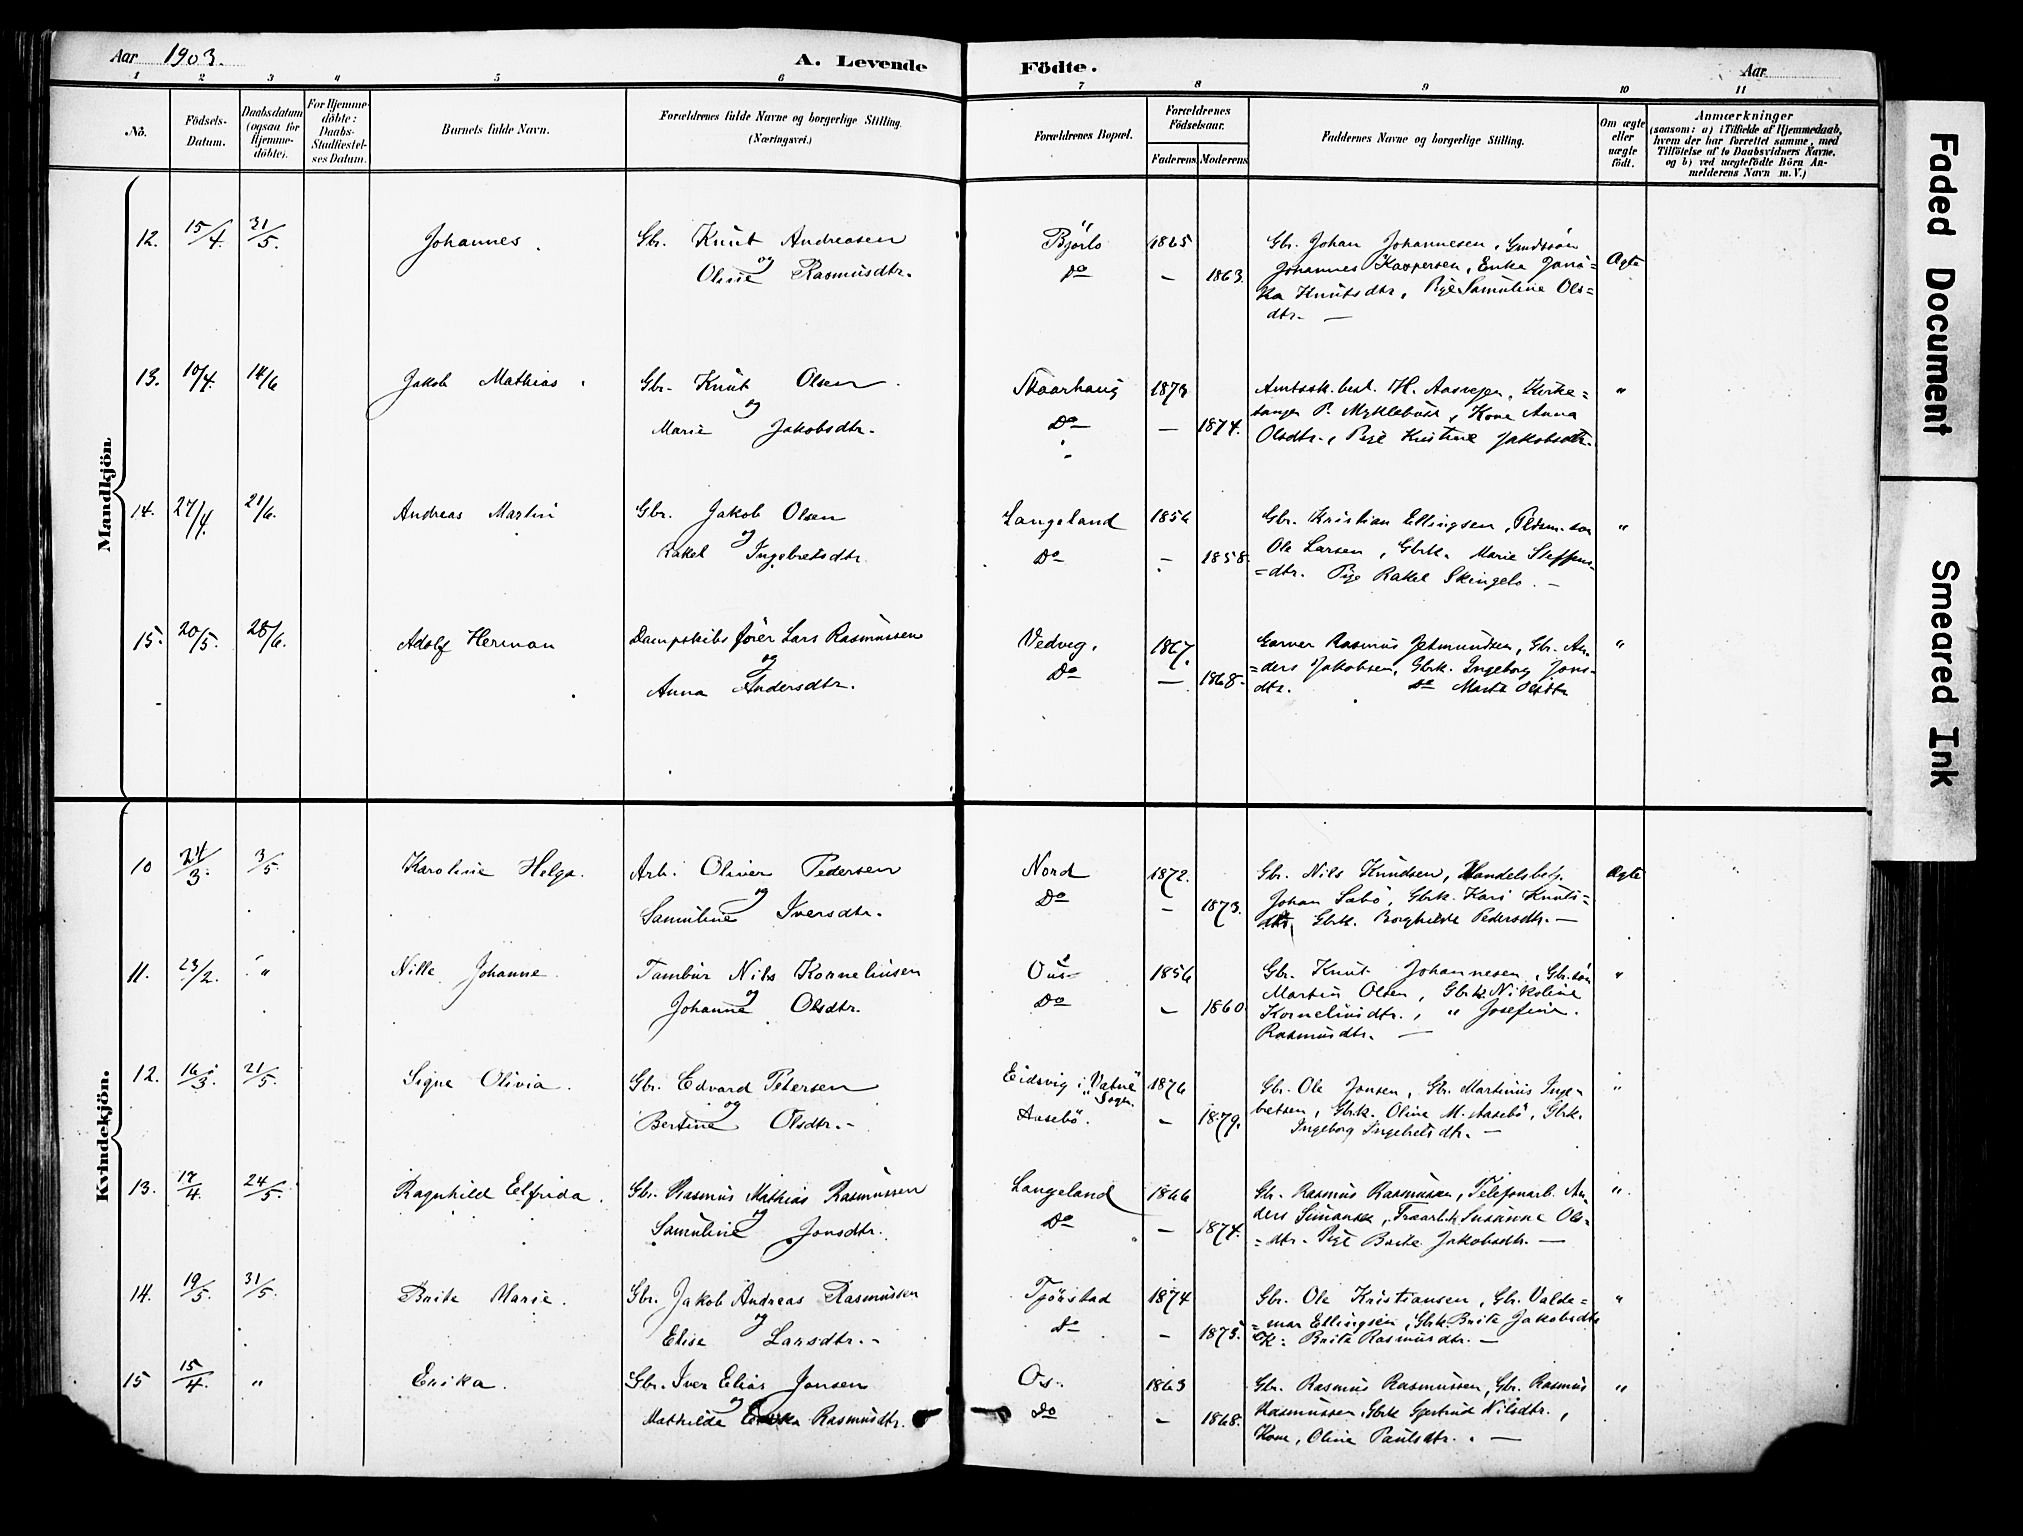 Aar 1903.
A. Levende Födte.
Aar
1 2 3 4 5 6 7 8 9 10 11
No.
Födsels-Datum.
Daabsdatum (ogsaa for Hjemme-döbte).
For Hjemme-döbte: Daabs-Stadfæstel-ses Datum.
Barnets fulde Navn.
Forældrenes fulde Navne og borgerlige Stilling. (Næringsvei.)
Forældrenes Bopæl.
Forældrenes Födselsaar.
Faderens Moderens
Faddernes Navne og borgerlige Stilling.
Om ægte eller uægte födt.
Anmærkninger
(saasom: a) i Tilfælde af Hjemmedaab, hvem der har forrettet samme, med Tilföielse af to Daabsvidners Navne, og b) ved uægtefödte Börn An-melderens Navn m. V.)
Mandkjön.
12. 15/4. 31/5. Johannes. Gbr. Knut Andreasen Bjørlo 1865 Gbr. Johan Johannesen,
og Olivie Rasmusdtr. Do — 1863. Johannes Kaspersen, Enke
Ægte
Knutsdtr, Pige Samuline Ols=
dtr. —
13. 10/4. 14/6 Jakob Mathias. Gbr. Knut Olsen. Skaarhaug 1873 H. Aasvejen, Kirke=
sanger P. Myklebust, Kone Anna
og Marie Jakobsdtr. Do — 1874. Olsdtr., Pige Kristine Jakobsdtr. "
14. 27/4. 21/6. Andreas Martin Gbr. Jakob Olsen Langeland 1856 Gbr. Kristian Ellingsen,
og Rakel Ingebretsdtr Do — 1858. Ole Larsen, Gbrk. Marie Steffens=
=dtr. Pige Rakel Skingelo. — "
15. 20/5. 28/6. Adolf Herman Dampskibsfører Lars Rasmussen Vedveg. 1867. Garver Rasmus Jetmundsen, Gbr. An=
og Anna Andersdtr. Do — 1868. =ders Jakobsen, Gbrk. Ingeborg Jons=
dtr. Do Marta Olsdtr "
Kvindekjön.
10 24/3. 3/5. Karoline Helga. Arb. Oliver Pedersen Nord 1872. Gbr. Nils Knudsen, Handelsbetj.
og Samuline Iversdtr. Do — 1873. Johan Sabø, Gbrk. Kari Knuts=
dtr, Gbrk. Borghilde Pedersdtr. — Ægte
11. 23/2. " Nille Johanne. Tambur Nils Kornelinsen Ous 1856 Gbr. Knut Johannesen, Gbr.søn
og Johanne Olsdtr. Do — 1860 Martin Olsen, Gbrk. Nikoline
Kornelinsdtr., " Josefine.
Rasmusdtr. — "
12. 16/3. 21/5. Signe Olivia. Gbr. Edvard Petersen Eidsvig i Vatne Sogn. 1876 Gbr. Ole Jonsen, Gbr. Martinus Inge=
og Bertine Olsdtr. - Aasebö. — 1879. bretsen, Gbrk. Oline M. Aasebö, Gbrk.
Ingeborg Ingebretsdtr. — "
13. 17/4. 24/5. Ragnhild Elfrida. Gbr. Rasmus Mathias Rasmussen Langeland 1866 Gbr. Rasmus Rasmussen, Telefonarb. An=
og Samuline Jonsdtr. Do — 1874. ders Simonsen, Susanne Ols=
=dtr. Pige Brite Jakobsdtr. — ".
14. 19/5. 31/5. Brite Marie. Gbr. Jakob Andreas Rasmussen Tjørstad 1874 Gbr. Ole Kristiansen, Gbr. Valde=
og Elise Larsdtr. - Do — 1875. =mar Ellingsen, Gbrk. Brite Jakobsdtr
K: Brite Rasmusdtr. — "
15 15/4. " Erika. Gbr. Iver Elias Jonsen Os. 1863 Gbr. Rasmus Rasmussen, Gbr. Rasmus
og Mathilde Erika Rasmusdtr. Do — 1868. Rasmussen, Gbrk Gjertrud Nilsdtr.,
Kone, Oline Paulsdtr. . — "
Faded Document
Smeared Ink